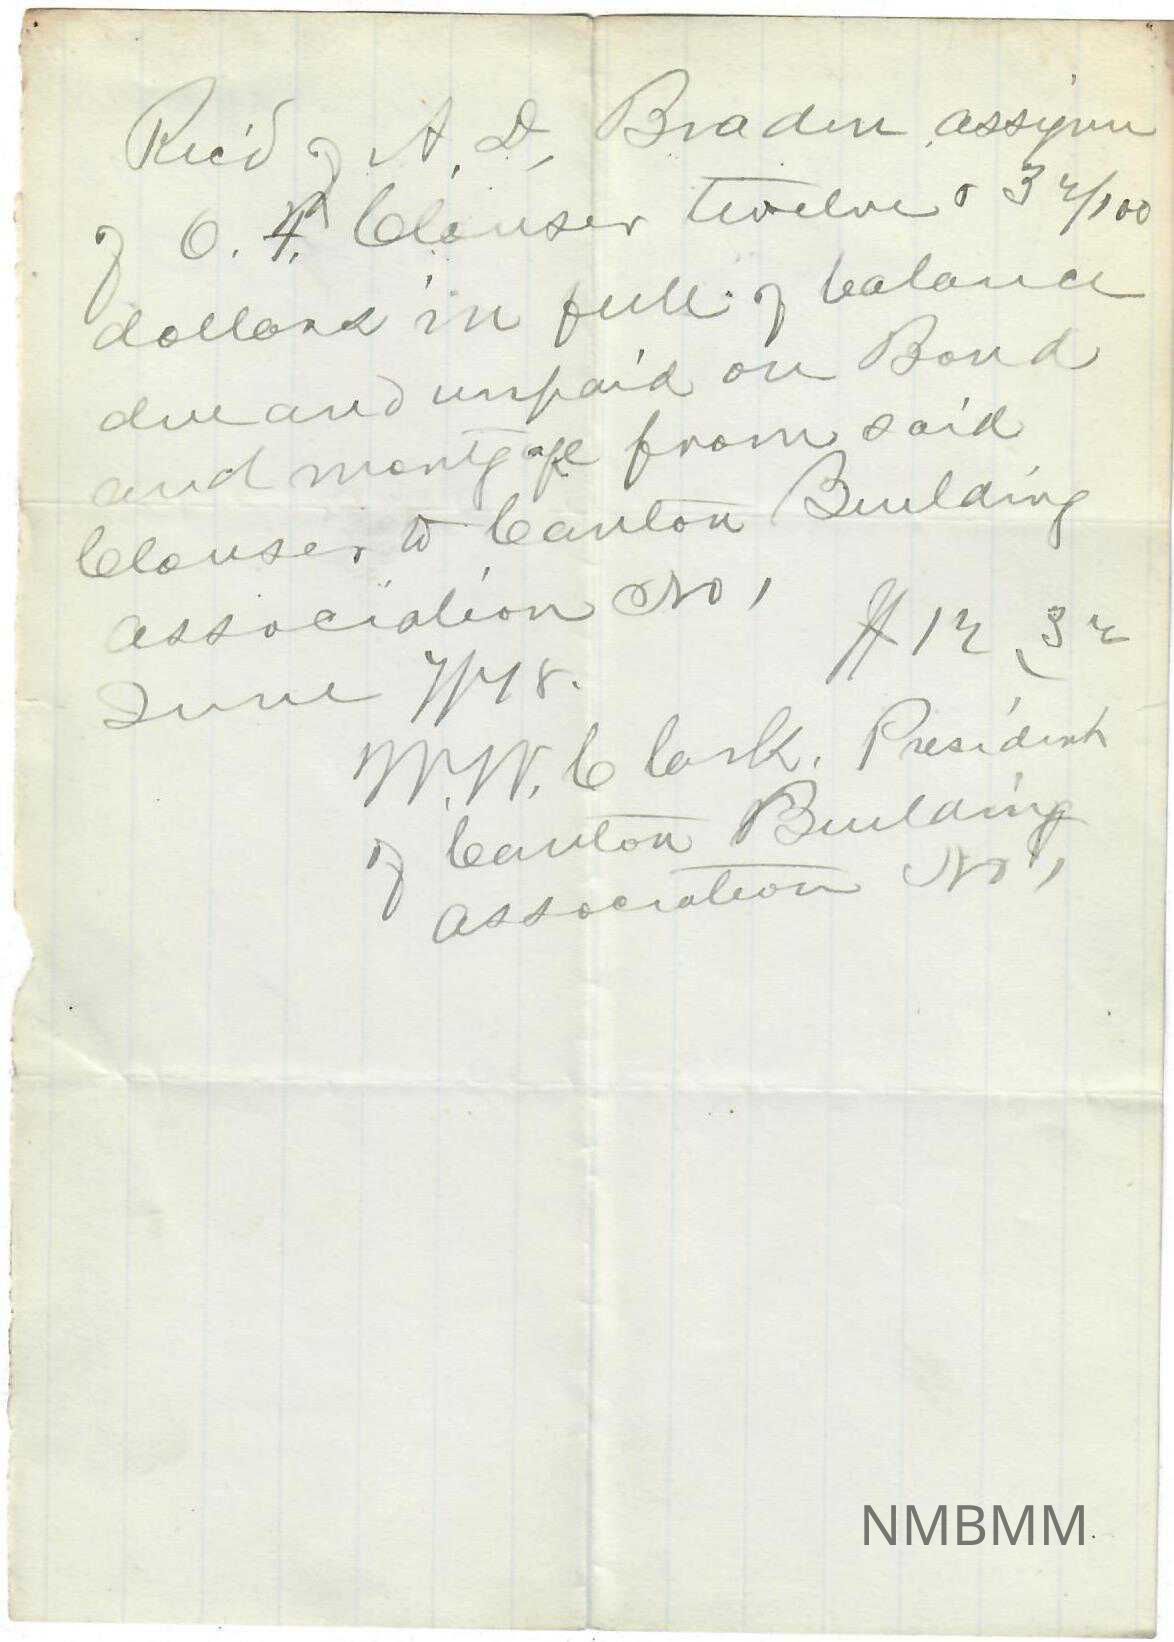 Rec'd of A. D. Braden assignee
of O. Clouser twelve & 32/100
dollars in full of balance
due and unpaid on Bond
and mortgage from said
Clouser to Canton Building
Association No 1
$12.32
June 7/78.
W. W. Clark, President
of Canton Building
Association No 1
NMBMM